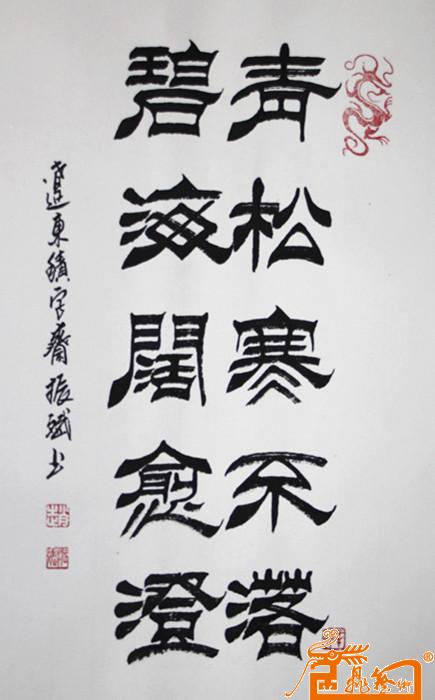 青松寒不落
碧海闊愈澄
遼東積字齋振斌书